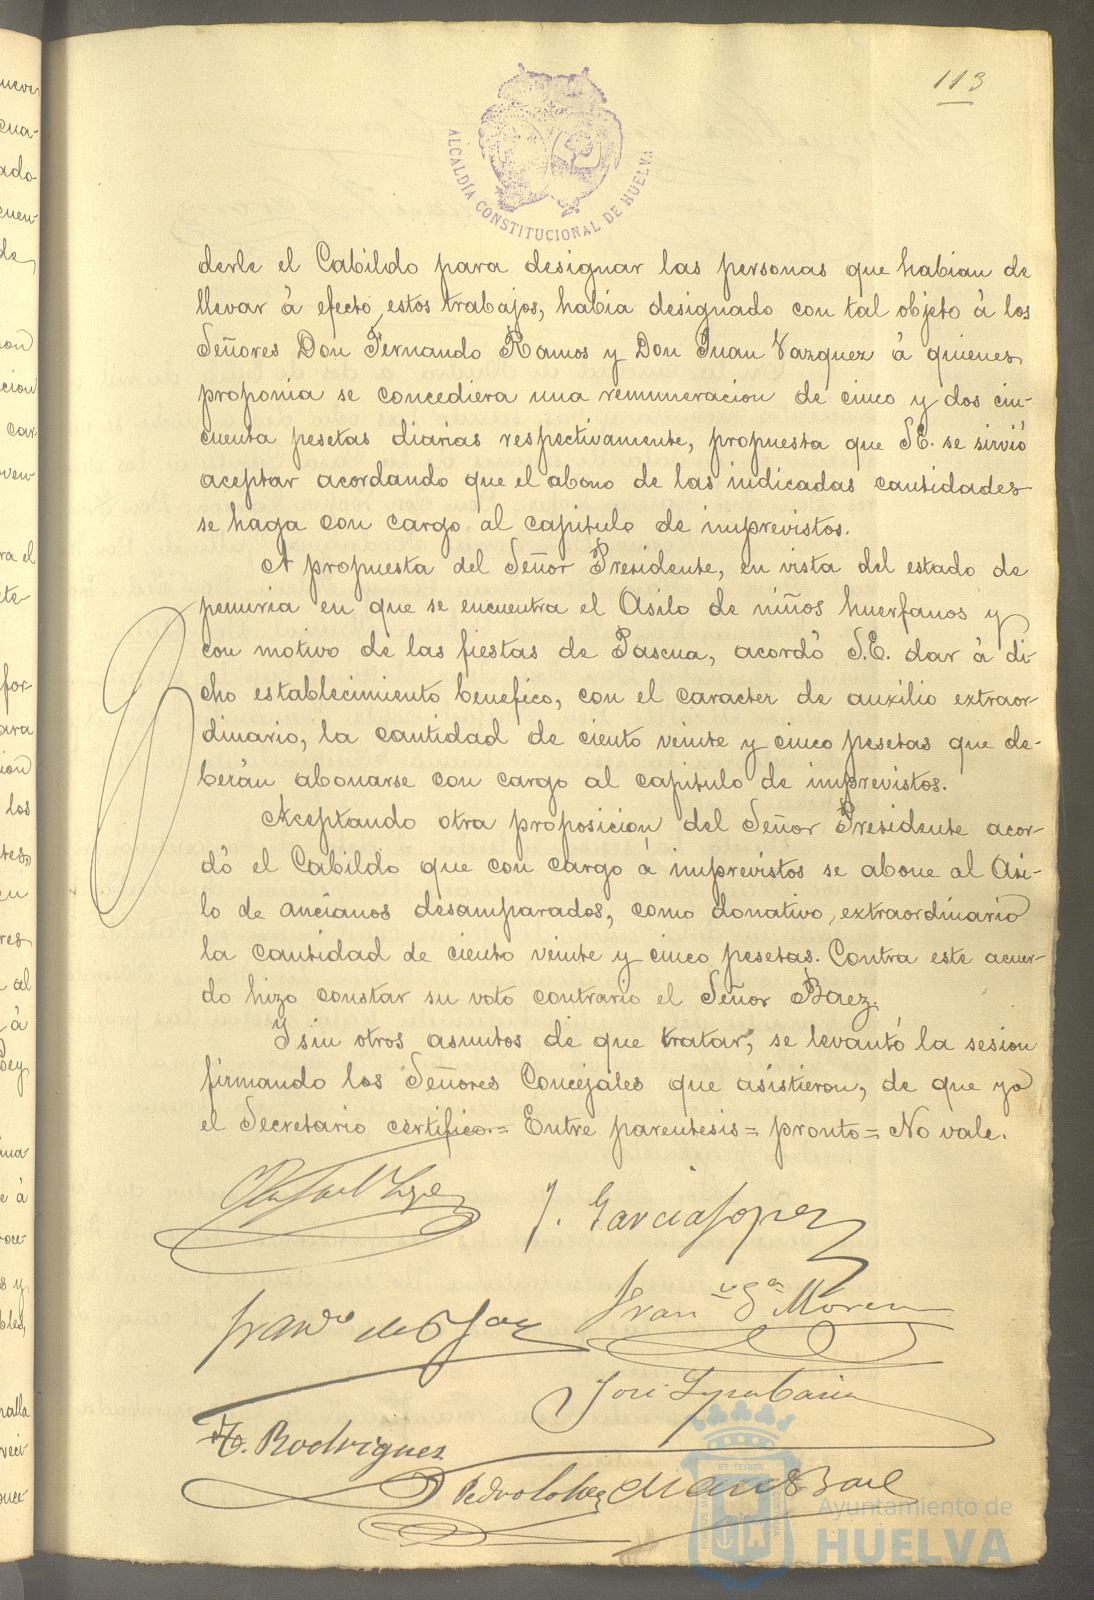 113
ALCALDÍA CONSTITUCIONAL DE HUELVA
derle el Cabildo para designar las personas que habian de
llevar á efecto estos trabajos, habia designado con tal objeto á los
Señores Don Fernando Ramos y Don Juan Vazquez á quienes
proponia se concediera una remuneracion de cinco y dos cin-
cuenta pesetas diarias respectivamente, propuesta que S.E. se sirvió
aceptar acordando que el abono de las indicadas cantidades
se haga con cargo al capitulo de imprevistos.
A propuesta del Señor Presidente, en vista del estado de
penuria en que se encuentra el Asilo de niños huerfanos y
con motivo de las fiestas de Pascua, acordó S.E. dar á di-
cho establecimiento benefico, con el caracter de auxilio extraor-
dinario, la cantidad de ciento veinte y cinco pesetas que de-
berán abonarse con cargo al capitulo de imprevistos.
Aceptando otra proposicion del Señor Presidente acor-
dó el Cabildo que con cargo á imprevistos se abone al Asi-
lo de ancianos desamparados, como donativo extraordinario
la cantidad de ciento veinte y cinco pesetas. Contra este acuer-
do hizo constar su voto contrario el Señor Baez.
Y sin otros asuntos de que tratar, se levantó la sesion
firmando los Señores Concejales que asistieron, de que yo
el Secretario certifico = Entre parentesis = pronto = No vale.
Rafael Lopez
J. Garcia Lopez
Fran.co de P.
Fran.co G.a Moreno
José
H. Rodriguez
Pedro Lopez
Baez
Ayuntamiento de
HUELVA